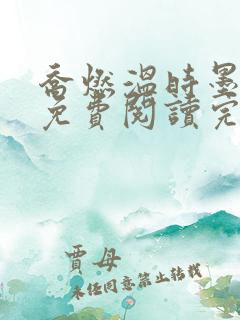 喬燃溫時墨
免費閱讀完
賈母
未任同意禁止转载